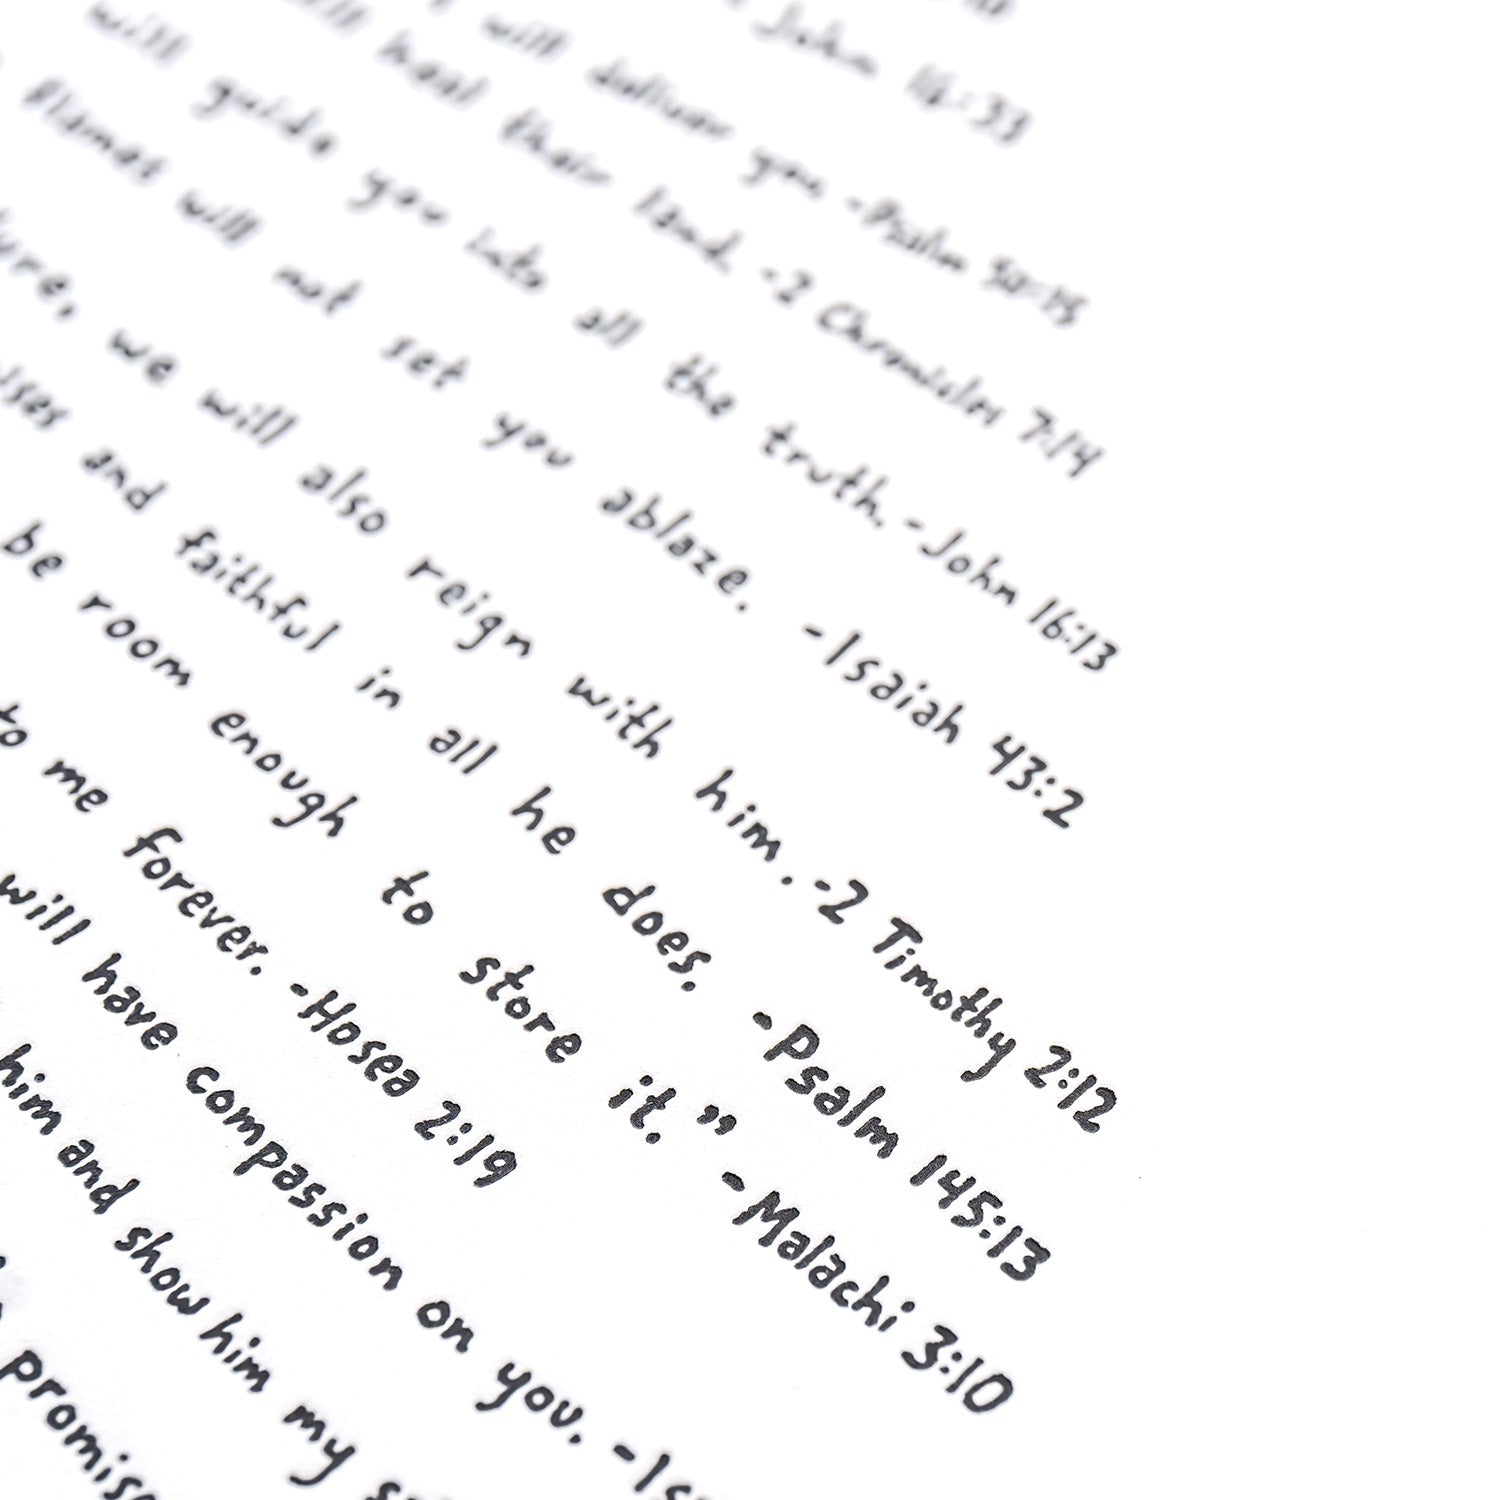 John 16:33
will deliver you. -Psalm 50:15
will heal their land. -2 Chronicles 7:14
will guide you into all the truth. -John 16:13
flames will not set you ablaze. -Isaiah 43:2
we will also reign with him. -2 Timothy 2:12
and faithful in all he does. -Psalm 145:13
be room enough to store it.” -Malachi 3:10
to me forever. -Hosea 2:19
will have compassion on you.
him and show him my